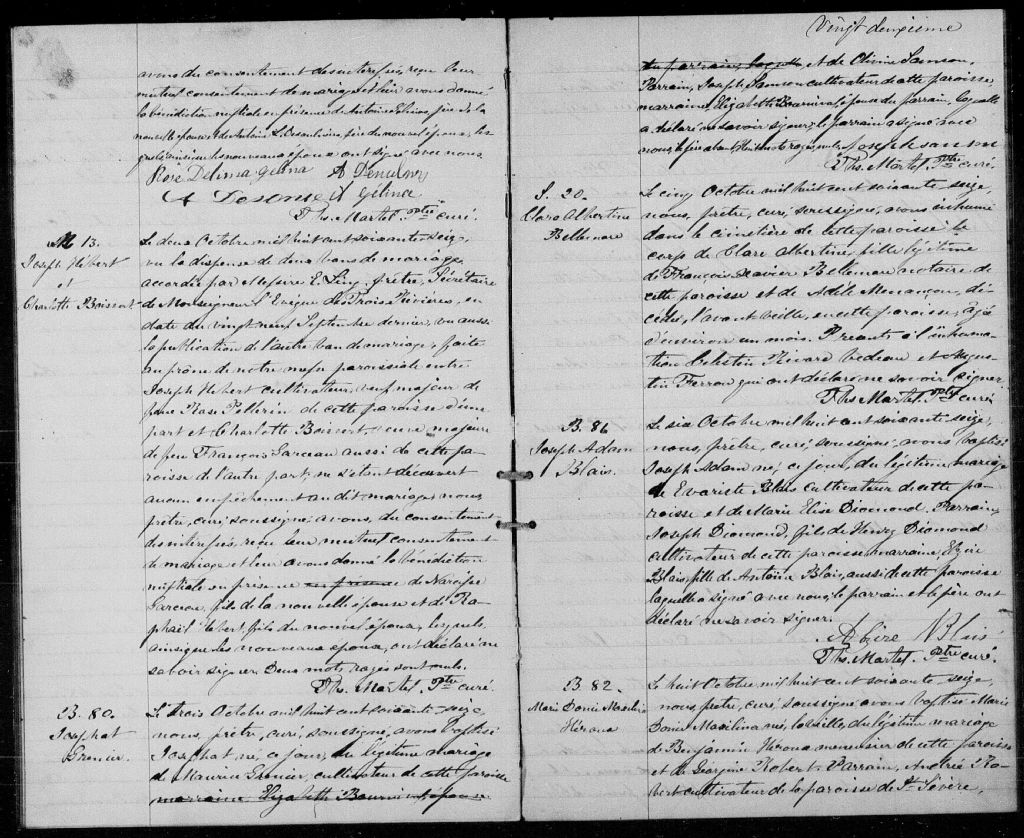 avons du consentement des intéressés, reçu leur
mutuel consentement de mariage et leur avons donné
la bénédiction nuptiale en présence de Antoine Gélina, père de la
nouvelle épouse et de Antoine Désaulniers, père du nouvel époux, les
quels ainsi que les nouveaux époux ont signé avec nous.
Rose Délima Gélina A Desaulniers
A Gélina
Ths. Martel. Ptre curé.
M 13.
Joseph Hébert
et
Charlotte Boisvert.
Le deux Octobre mil huit cent soixante-seize,
vu la dispense de deux bans de mariage
accordée par Messire E. Ling, prêtre, Sécrétaire
de Monseigneur l'Evêque des Trois Rivières, en
date du vingt neuf Septembre dernier, vu aussi
la publication de l'autre ban de mariage, faite
au prône de notre messe paroissiale entre
Joseph Hébert cultivateur, veuf majeur de
feue Rose Pellerin de cette paroisse d'une
part et Charlotte Boisvert, veuve majeure
de feu François Garceau aussi de cette pa-
roisse de l'autre part; ne s'étant découvert
aucun empêchement au dit mariage, nous,
prêtre, curé, soussigné, avons, du consentement
des intéressés, reçu leur mutuel consentement
de mariage et leur avons donné la bénédiction
nuptiale en présence en présence de Narcisse
Garceau, fils de la nouvelle épouse et de Ra-
phaël Hébert, fils du nouvel époux, lesquels
ainsi que les nouveaux époux, ont déclaré ne
savoir signer. Deux mots rayés sont nuls.
Ths. Martel. Ptre curé.
B. 80.
Josaphat
Grenier.
Le trois Octobre mil huit cent soixante-seize,
nous, prêtre, curé, soussigné, avons baptisé
Josaphat né, ce jour, du légitime mariage
de Maurice Grenier, cultivateur de cette paroisse
marraine Elizabeth Bournival épouse
Vingt deuxième
du parrain, laquelle et de Olivine Samson.
Parrain, Joseph Samson cultivateur de cette paroisse,
marraine, Elizabeth Bournival, épouse du parrain, laquelle
a déclaré ne savoir signer; le parrain a signé avec
nous, le père absent. Huit mots rayés nuls. Joseph samson
Ths. Martel. Ptre curé.
S. 20.
Clara Albertine
Bellemare
Le cinq Octobre mil huit cent soixante-seize,
nous, prêtre, curé, soussigné, avons inhumé
dans le cimetière de cette paroisse le
corps de Clara Albertine, fille légitime
de François Xavier Bellemare notaire de
cette paroisse et de Adèle Menançon, dé-
cédée, l'avant veille, en cette paroisse, âgée
d'environ un mois. Présents à l'inhuma-
tion Célestin Rivard bedeau et Augus-
tin Ferron qui ont déclaré ne savoir signer.
Ths. Martel. Ptre curé
B. 81
Joseph Adam
Blais.
Le six Octobre mil huit cent soixante-seize,
nous, prêtre, curé, soussigné, avons baptisé
Joseph Adam né, ce jour, du légitime mariage
de Evariste Blais cultivateur de cette pa-
roisse et de Marie Elise Diamond. Parrain,
Joseph Diamond, fils de Henry Diamond
cultivateur de cette paroisse, marraine, Elzire
Blais, fille de Antoine Blais, aussi de cette paroisse
laquelle a signé avec nous; le parrain et le père ont
déclaré ne savoir signer.
Elzire Blais
Ths. Martel. Ptre curé.
B. 82.
Marie Donie Maxelina
Héroux
Le huit Octobre mil huit cent soixante-seize,
nous, prêtre, curé, soussigné avons baptisé Marie
Donie Maxelina née, la veille, du légitime mariage
de Benjamin Héroux menuisier de cette paroisse
et de Georgine Robert. Parrain, Andrée Ro-
bert cultivateur de la paroisse de St. Sévère,